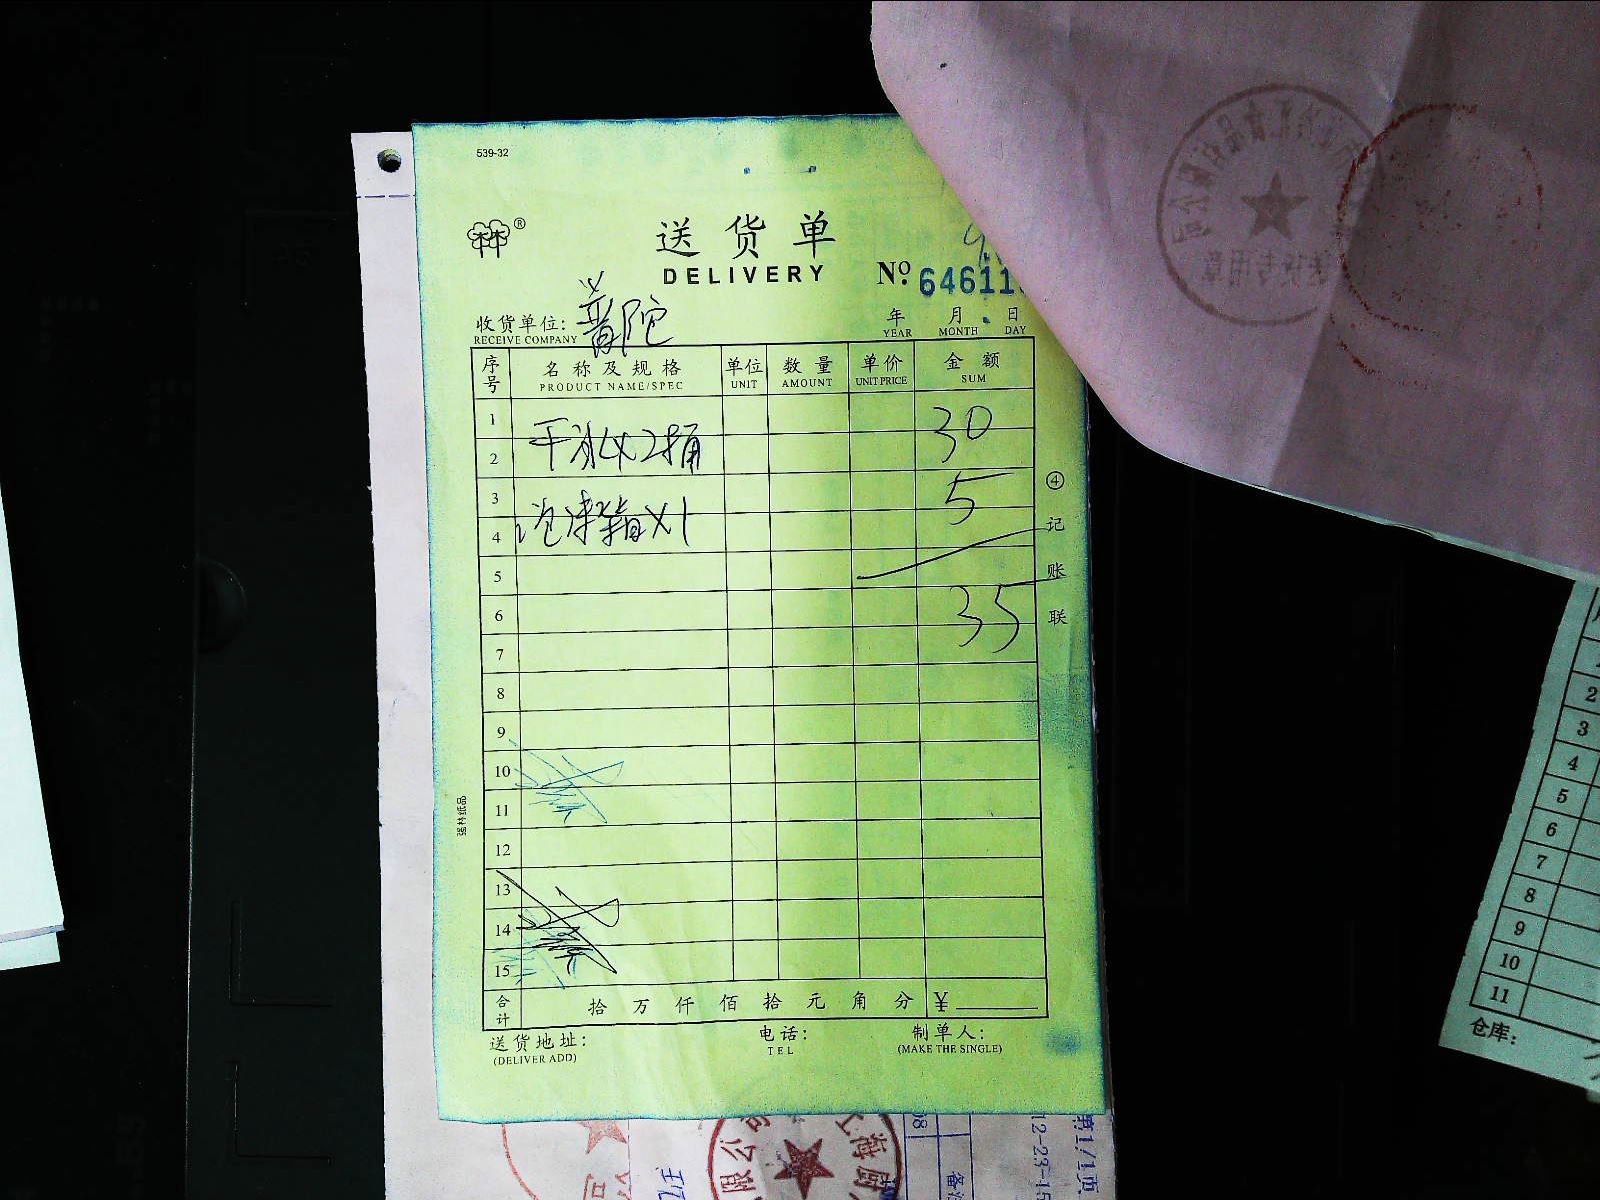 539-32
送货单
DELIVERY
No. 64611
收货单位: 普陀
RECEIVE COMPANY
年 月 日
YEAR MONTH DAY
序号 名称及规格 单位 数量 单价 金额
PRODUCT NAME/SPEC UNIT AMOUNT UNIT PRICE SUM
1
干冰X2桶 30
2
3
泡沫箱X1 5
4
5
6 35
7
8
9
10
11
12
13
14
15
合计 拾 万 仟 佰 拾 元 角 分 ¥
送货地址: 电话: 制单人:
(DELIVER ADD) TEL (MAKE THE SINGLE)
④记账联
强林纸品
送货专用章
2
3
4
5
6
7
8
9
10
11
仓库:
限公司
上海厨
第1/1页
12-23-15